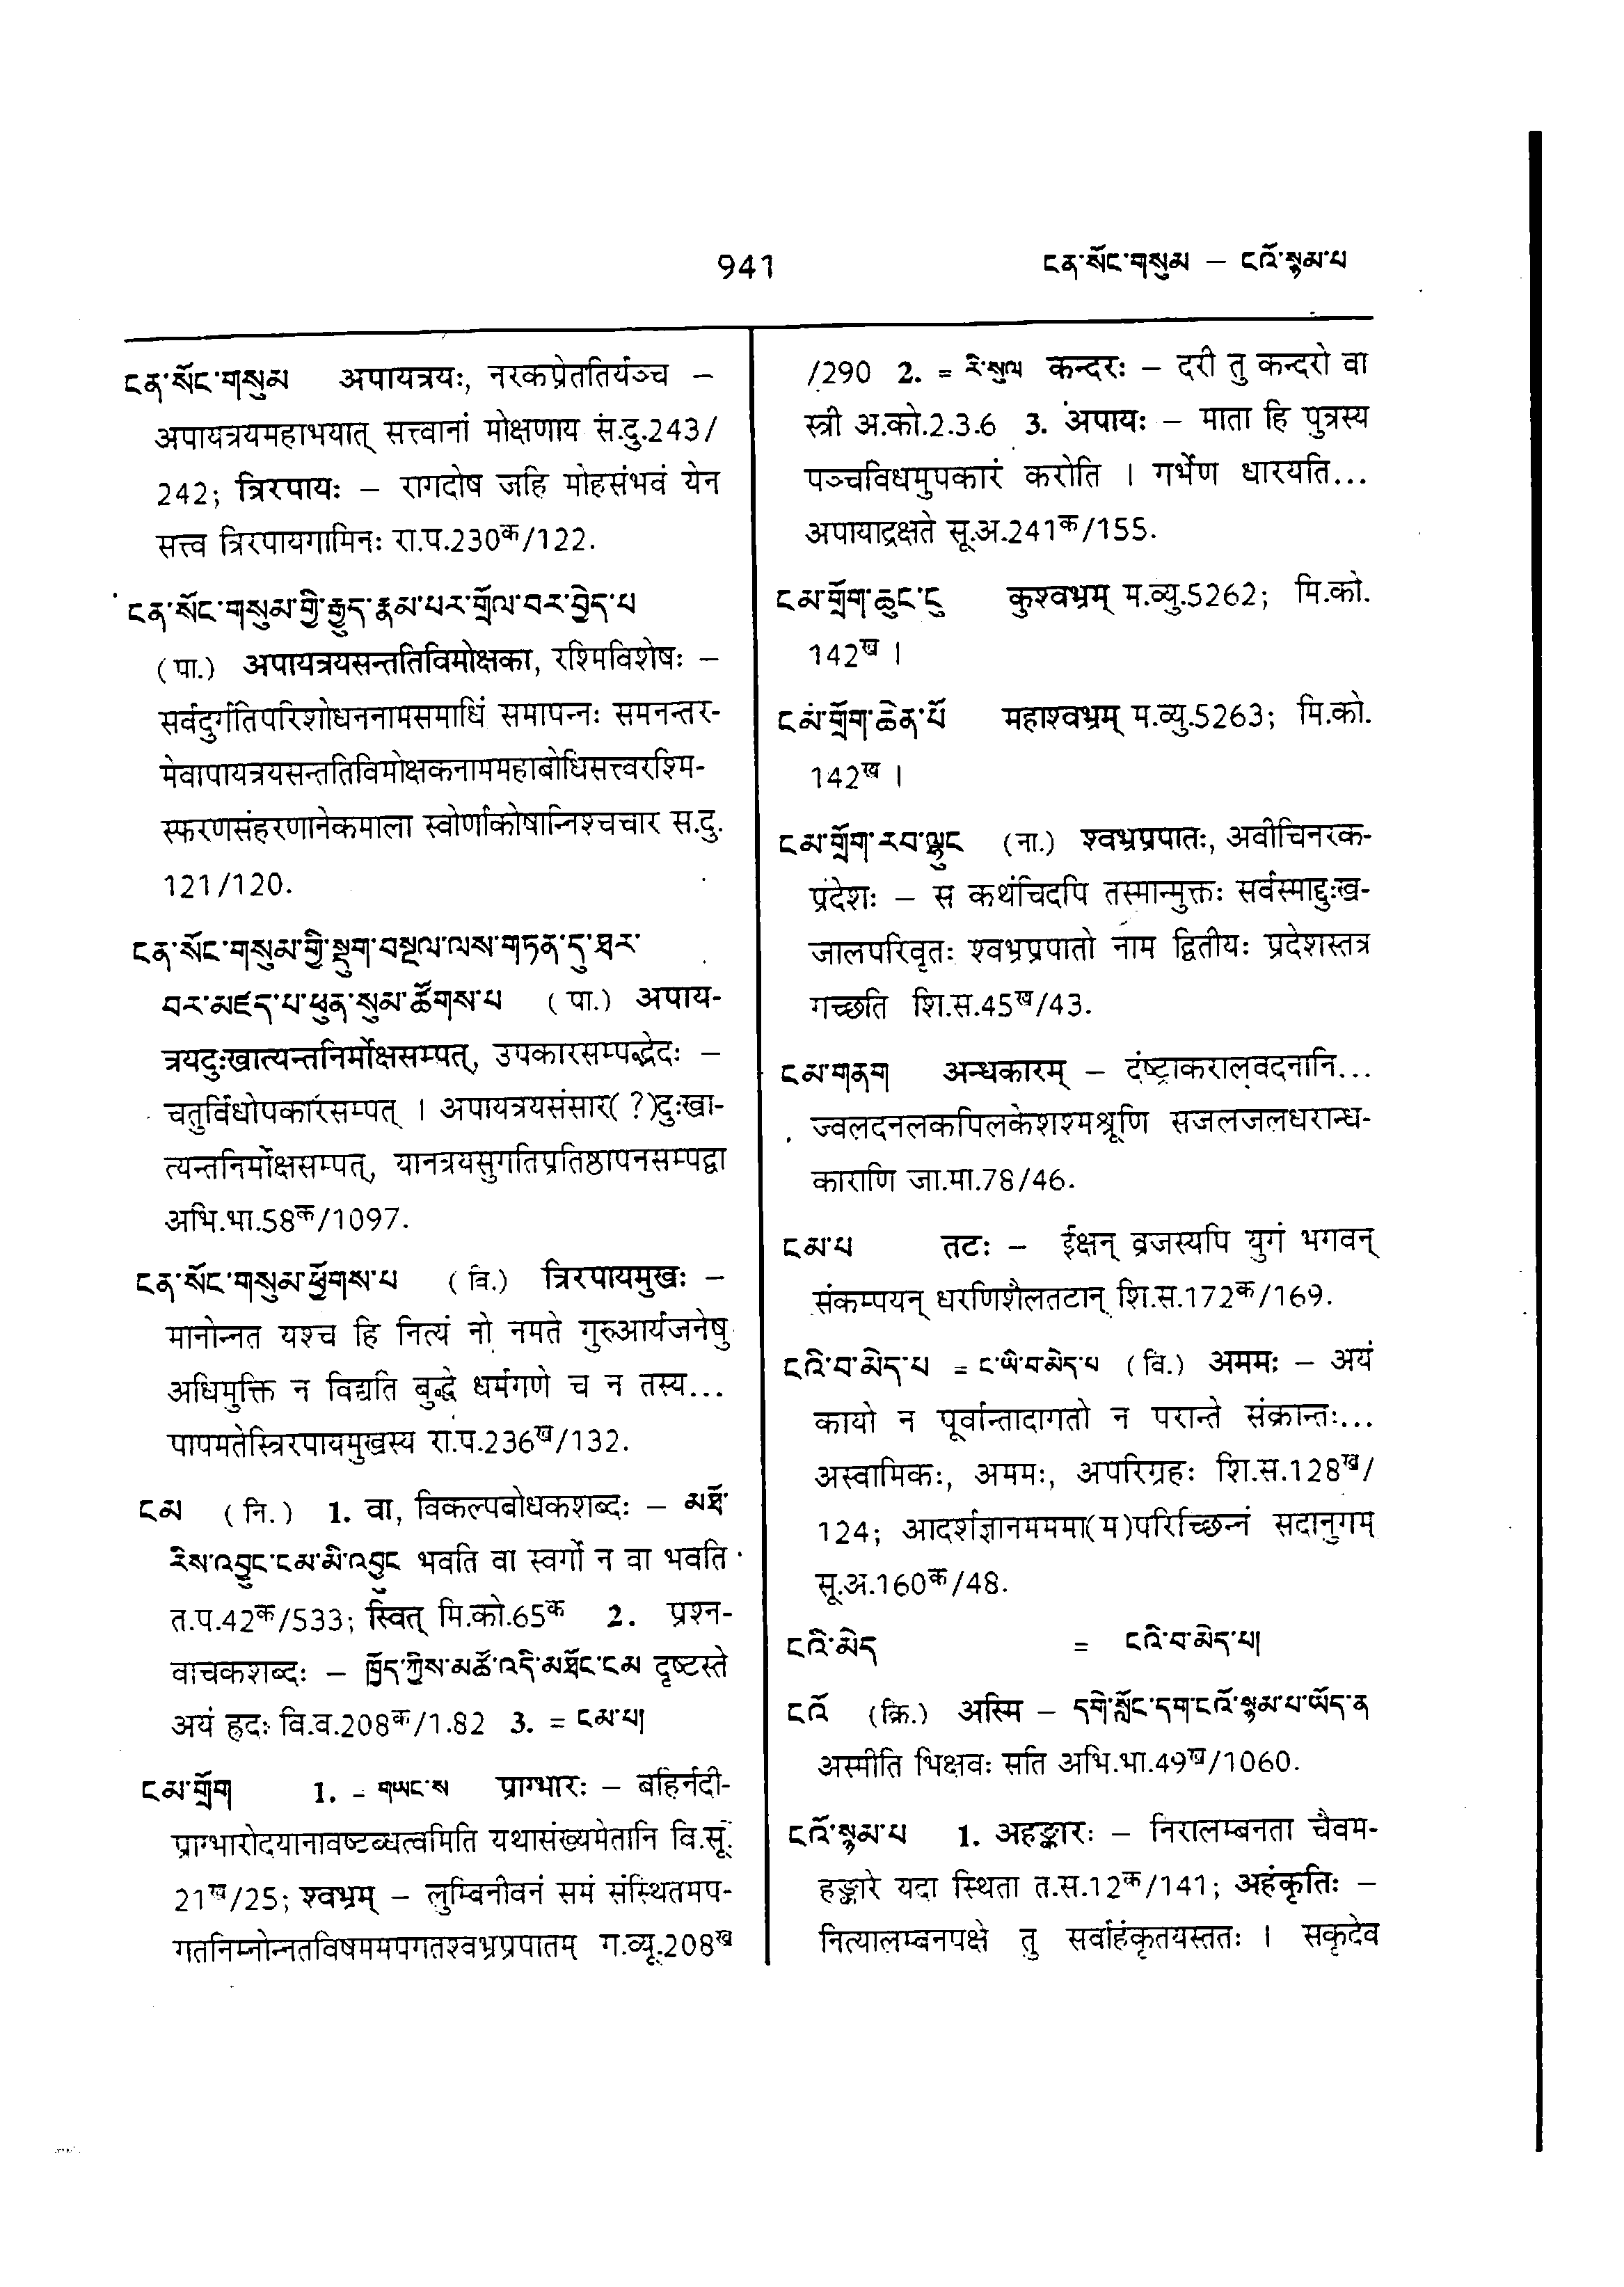 941
ངན་སོང་གསུམ – ངའོ་སྙམ་པ
ངན་སོང་གསུམ अपायत्रयः, नरकप्रेततिर्यञ्च –
अपायत्रयमहाभयात् सत्त्वानां मोक्षणाय सं.दु.243/
242; त्रिरपायः – रागदोष जहि मोहसंभवं येन
सत्त्व त्रिरपायगामिनः रा.प.230क/122.
ངན་སོང་གསུམ་གྱི་རྒྱུད་རྣམ་པར་གྲོལ་བར་བྱེད་པ
(पा.) अपायत्रयसन्ततिविमोक्षका, रश्मिविशेषः –
सर्वदुर्गतिपरिशोधननामसमाधिं समापन्नः समनन्तर-
मेवापायत्रयसन्ततिविमोक्षकनाममहाबोधिसत्त्वरश्मि-
स्फरणसंहरणानेकमाला स्वोर्णाकोषान्निश्चचार स.दु.
121/120.
ངན་སོང་གསུམ་གྱི་སྡུག་བསྔལ་ལས་གཏན་དུ་ཐར་
བར་མཛད་པ་ཕུན་སུམ་ཚོགས་པ (पा.) अपाय-
त्रयदुःखात्यन्तनिर्मोक्षसम्पत्, उपकारसम्पद्भेदः –
चतुर्विधोपकारसम्पत् । अपायत्रयसंसार(?)दुःखा-
त्यन्तनिर्मोक्षसम्पत्, यानत्रयसुगतिप्रतिष्ठापनसम्पद्वा
अभि.भा.58क/1097.
ངན་སོང་གསུམ་ཕྱོགས་པ (वि.) त्रिरपायमुखः –
मानोन्नत यश्च हि नित्यं नो नमते गुरुआर्यजनेषु
अधिमुक्ति न विद्यति बुद्धे धर्मगणे च न तस्य...
पापमतेस्त्रिरपायमुखस्य रा.प.236ख/132.
ངམ (नि.) 1. वा, विकल्पबोधकशब्दः – མཐོ་
རིས་འབྱུང་ངམ་མི་འབྱུང भवति वा स्वर्गो न वा भवति
त.प.42क/533; स्वित् मि.को.65क 2. प्रश्न-
वाचकशब्दः – ཁྱོད་ཀྱིས་མཚོ་འདི་མཐོང་ངམ दृष्टस्ते
अयं ह्रदः वि.व.208क/1.82 3. = ངམ་པ།
ངམ་གྲོག 1. = གཡང་ས प्राग्भारः – बहिर्नदी-
प्राग्भारोदयानावष्टब्धत्वमिति यथासंख्यमेतानि वि.सू.
21ख/25; श्वभ्रम् – लुम्बिनीवनं समं संस्थितमप-
गतनिम्नोन्नतविषममपगतश्वभ्रप्रपातम् ग.व्यू.208ख
/290 2. = རི་སུལ कन्दरः – दरी तु कन्दरो वा
स्त्री अ.को.2.3.6 3. अपायः – माता हि पुत्रस्य
पञ्चविधमुपकारं करोति । गर्भेण धारयति...
अपायाद्रक्षते सू.अ.241क/155.
ངམ་གྲོག་ཆུང་ངུ कुश्वभ्रम् म.व्यु.5262; मि.को.
142ख ।
ངམ་གྲོག་ཆེན་པོ महाश्वभ्रम् म.व्यु.5263; मि.को.
142ख ।
ངམ་གྲོག་རབ་ལྷུང (ना.) श्वभ्रप्रपातः, अवीचिनरक-
प्रदेशः – स कथंचिदपि तस्मान्मुक्तः सर्वस्माद्दुःख-
जालपरिवृतः श्वभ्रप्रपातो नाम द्वितीयः प्रदेशस्तत्र
गच्छति शि.स.45ख/43.
ངམ་གནག अन्धकारम् – दंष्ट्राकरालवदनानि...
ज्वलदनलकपिलकेशश्मश्रूणि सजलजलधरान्ध-
काराणि जा.मा.78/46.
ངམ་པ तटः – ईक्षन् व्रजस्यपि युगं भगवन्
संकम्पयन् धरणिशैलतटान् शि.स.172क/169.
ངའི་བ་མེད་པ = ང་ཡི་བ་མེད་པ (वि.) अममः – अयं
कायो न पूर्वान्तादागतो न परान्ते संक्रान्तः...
अस्वामिकः, अममः, अपरिग्रहः शि.स.128ख/
124; आदर्शज्ञानमममा(म)परिच्छिन्नं सदानुगम्
सू.अ.160क/48.
ངའི་མེད = ངའི་བ་མེད་པ།
ངའོ (क्रि.) अस्मि – དགེ་སློང་དག་ངའོ་སྙམ་པ་ཡོད་ན
अस्मीति भिक्षवः सति अभि.भा.49ख/1060.
ངའོ་སྙམ་པ 1. अहङ्कारः – निरालम्बनता चैवम-
हङ्कारे यदा स्थिता त.स.12क/141; अहंकृतिः –
नित्यालम्बनपक्षे तु सर्वाहंकृतयस्ततः । सकृदेव